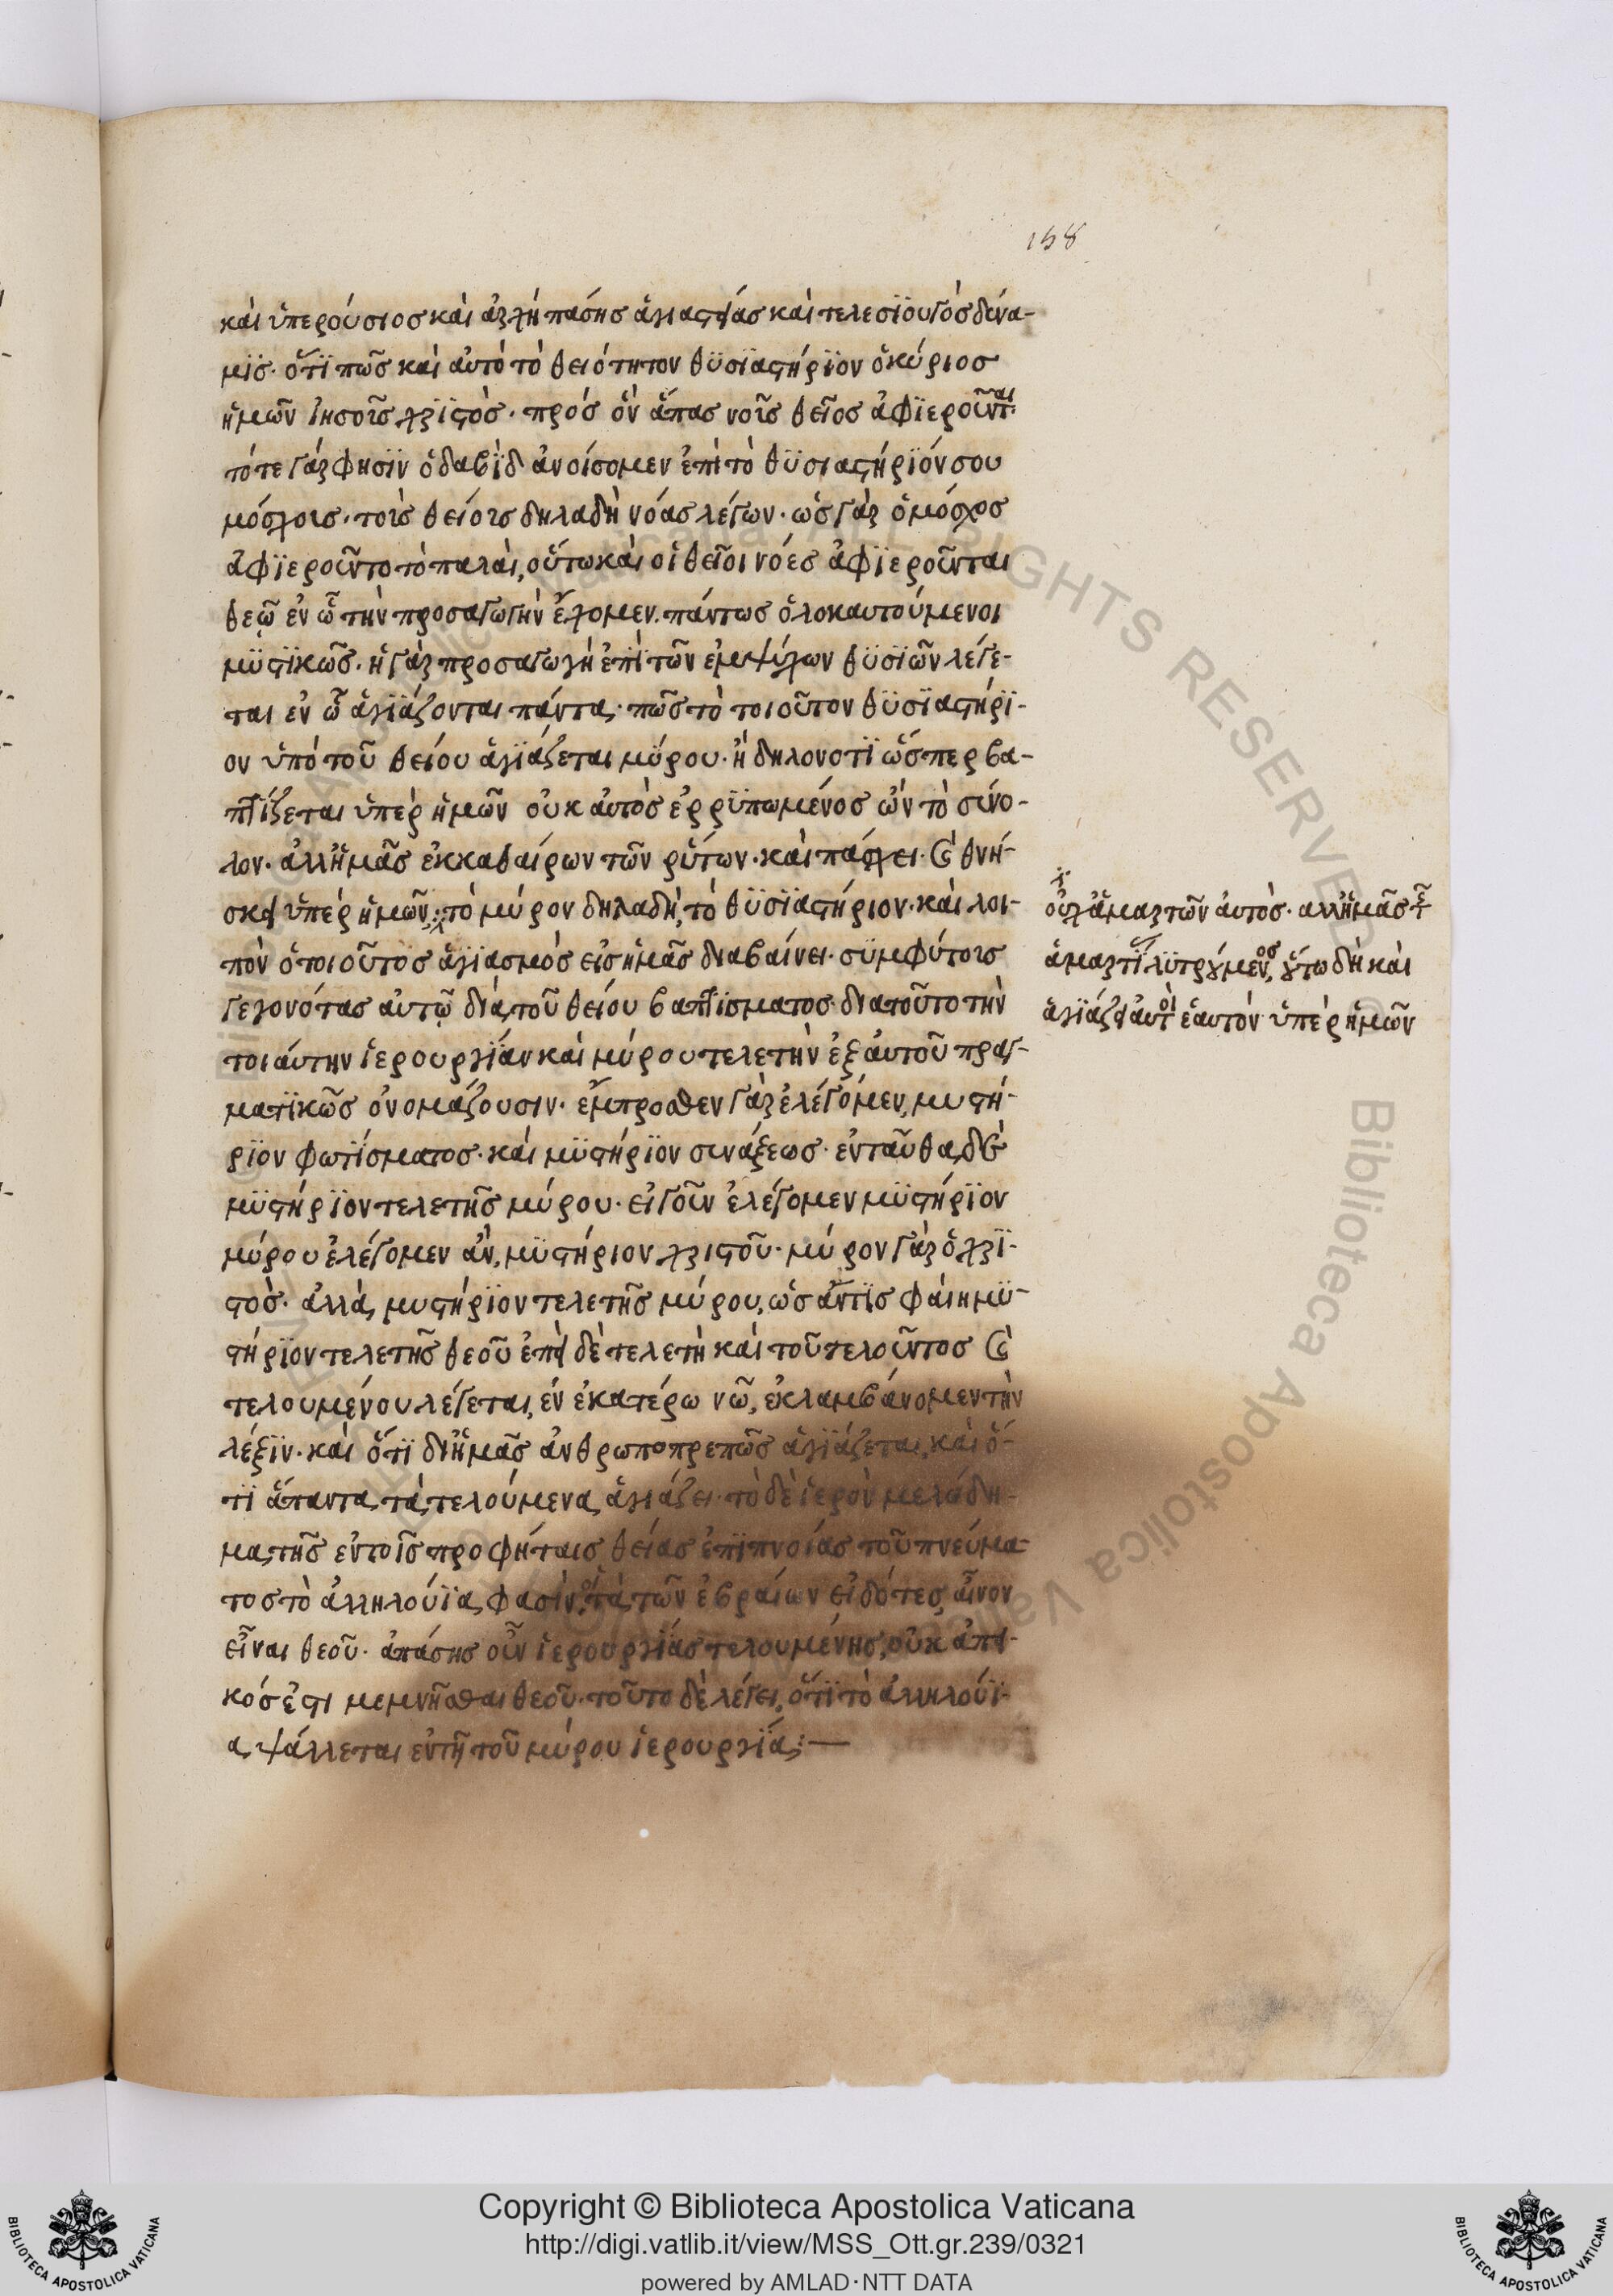 158
καὶ ὑπερούσιος καὶ ἀρχὴ πάσης ἁγιαστείας καὶ τελεσϊουργὸς δύνα-
μϊς· ὅτϊ πῶς καὶ αὐτὸ τὸ θειότητον θϋσϊαστήρϊον ὁ κύριος
ἡμῶν ἰησοῦς χρϊστὸς· πρόσ ὃν ἅπας νοῦς θεῖος ἀφϊεροῦνται
τότε γάρ φησϊν ὁ δαβϊδ ἀνοίσομεν ἐπὶ τὸ θϋσιαστήρϊόν σου
μόσχοις· τοὶς θείοις δηλαδὴ νόας λέγων· ὡς γὰρ ὁ μόσχος
ἀφϊεροῦντο τὸ παλὰι, οὕτω καὶ οἱ θεῖοι νόες ἀφϊεροῦνται
θεῷ ἐν ᾧ τὴν προσαγωγὴν ἔχομεν. πάντως ὁλοκαυτούμενοι
μϋστϊκῶς· ἡ γὰρ προσαγωγὴ ἐπὶ τῶν ἐμψύχων θϋσϊῶν λέγε-
ται ἐν ᾧ ἁγϊάζονται πάντα· πῶς τὸ τοιοῦτον θϋσϊαστήρϊ-
ον ὑπὸ τοῦ θείου ἁγϊάζεται μϋρου· ἢ δηλονοτϊ ὥσπερ βα-
πτίζεται ὑπὲρ ἡμῶν οὐκ αὐτὸς ἐρρϋπωμένος ὢν τὸ σύνο-
λον· ἀλλ' ἡμᾶς ἐκκαθαίρων τῶν ρύπων· καὶ πάσχει· καὶ θνή-
σκει ὑπὲρ ἡμῶν· τὸ μύρον δηλαδὴ, τὸ θϋσϊαστήριον· καὶ λοι-
πὸν ὁ τοιοῦτος ἁγϊασμὸς εἰς ἡμᾶς διαβαίνει· σϋμφύτοις
γεγονότας αὐτῷ διὰ τοῦ θείου βαπτϊσματος· διατοῦτο τὴν
τοιάυτην ἱερουργϊαν καὶ μύρου τελετὴν ἐξ ἀυτοῦ πραγ-
ματϊκῶς ὀνομάζουσιν· ἔμπροσθεν γὰρ ἐλέγομεν, μυστή-
ρϊον φωτϊσματος· καὶ μϋστήρϊον συνάξεως· ἐνταῦθα δὲ
μϋστήρϊον τελετῆς μύρου· εἰ γοῦν ἐλέγομεν μϋστήρϊον
μύρου ἐλέγομεν ἂν, μϋστήριον χριστοῦ· μύρον γὰρ ὁ χρϊ-
στὸς· ἀλλὰ, μυστήρϊον τελετῆς μύρου, ὡς ἄντϊς φάιη μϋ-
στήρϊον τελετῆς θεοῦ ἐπεὶ δὲ τελετὴ καὶ τοῦ τελοῦντος καὶ
τελουμένου λέγεται, ἐν ἐκατέρω νῶ, ἐκλαμβάνομεν τὴν
λέξϊν· καὶ ὅτϊ δι' ἡμᾶς ἀνθρωποπρεπῶς ἁγϊάζεται, καὶ ὅ-
τϊ ἅπαντα τὰ τελούμενα ἁγιάζει· τὸ δὲ ἱερὸν μελώδη-
μα, τῆς ἐντοῖς προφήταις θείας ἐπϊπνοίας τοῦ πνεύμα-
τος τὸ ἀλληλούϊα, φασὶν οἱ τὰ τῶν ἑβραίων εἰδότες, αἶνον
εἶναι θεοῦ· ἁπάσης οὖν ἱερουργϊας τελουμένης, οὐκ ἀπει-
κός ἐστι μεμνῆσθαι θεοῦ· τοῦτο δὲ λέγει, ὅτϊ τὸ ἀλληλούϊ-
α, ψάλλεται ἐντῆ τοῦ μύρου ἱερουργϊα:—
οὐχ' ἁμαρτῶν ἀυτὸς· ἀλλ' ἡμᾶς τῆς
ἁμαρτϊ λϋτρούμενος, οὕτω δὴ καὶ
ἁγϊάζει ἑαυτὸν ὑπὲρ ἡμῶν
Copyright © Biblioteca Apostolica Vaticana
http://digi.vatlib.it/view/MSS_Ott.gr.239/0321
powered by AMLAD·NTT DATA
BIBLIOTECA APOSTOLICA VATICANA
BIBLIOTECA APOSTOLICA VATICANA